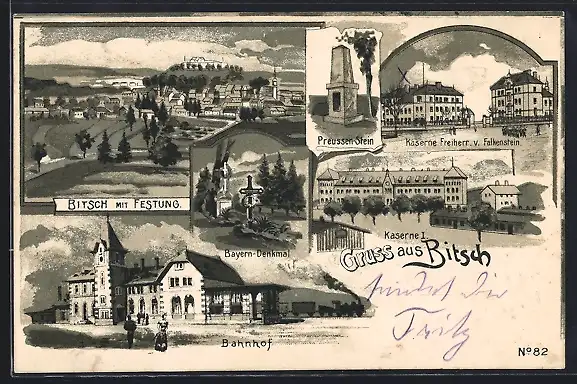 Preussen-Stein
Kaserne Freiherr. v. Falkenstein.
Bitsch mit Festung.
Bayern-Denkmal
Kaserne I.
Gruss aus Bitsch
sendet dir
Fritz
Bahnhof
No 82